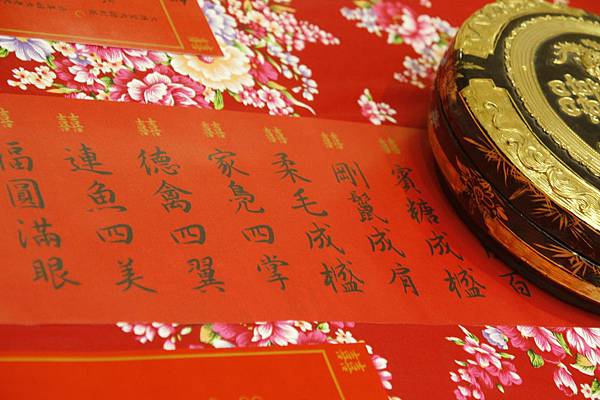 百
賓糖成楹
剛鬣成肩
柔毛成楹
家鳧四掌
德禽四翼
連魚四美
福圓滿眼
囍 囍 囍 囍 囍 囍 囍
囍
囍